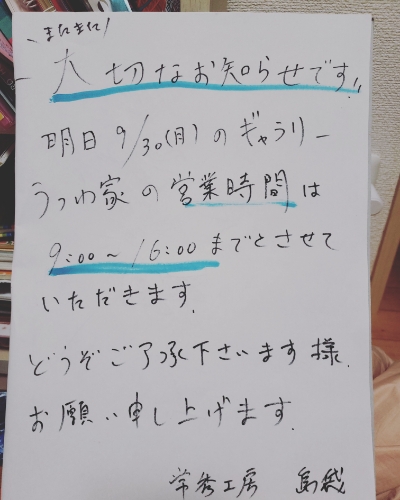 またまた!
大切なお知らせです!!
明日9/30(月)のギャラリー
うつわ家の営業時間は
9:00〜16:00までとさせて
いただきます.
どうぞご了承下さいます様.
お願い申し上げます.
常秀工房 島袋